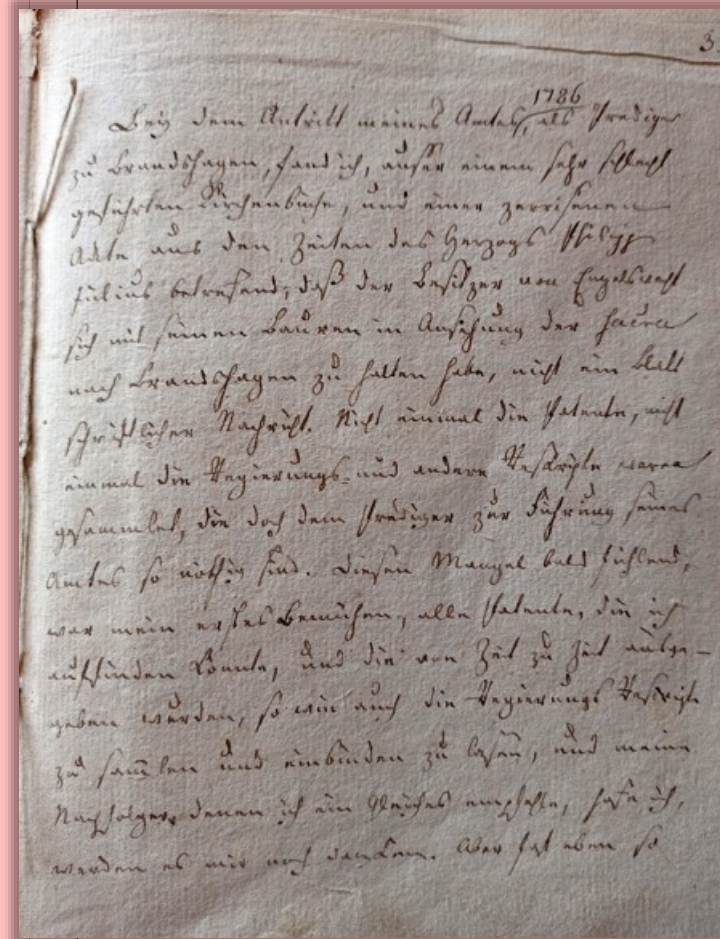 3
1786
Bey dem Antritt meines Amtes, als Prediger
zu Brandshagen, fand ich, außer einem sehr schlecht
geführten Kirchenbuche, und einer zerrissenen
Akte aus den Zeiten des Herzogs Philipp
Julius betrefend, daß der Besitzer von Engelswacht
sich mit seinen Bauren in Ansehung der Sacra
nach Brandshagen zu halten habe, nicht ein Blatt
schriftlicher Nachricht. Nicht einmal die Patente, nicht
einmal die Regierungs- und andere Reskripte waren
gesammlet, die doch dem Prediger zur Führung seines
Amtes so nöthig sind. Diesen Mangel bald fühlend,
war mein erstes Bemühen, alle Patente, die ich
auffinden konnte, und die von Zeit zu Zeit ausge-
geben wurden, so wie auch die Regierungs Reskripte
zu sammlen und einbinden zu lasen, und meine
Nachfolger, denen ich ein Gleiches empfehle, hofe ich,
werden es mir noch danken. Aber hat eben so